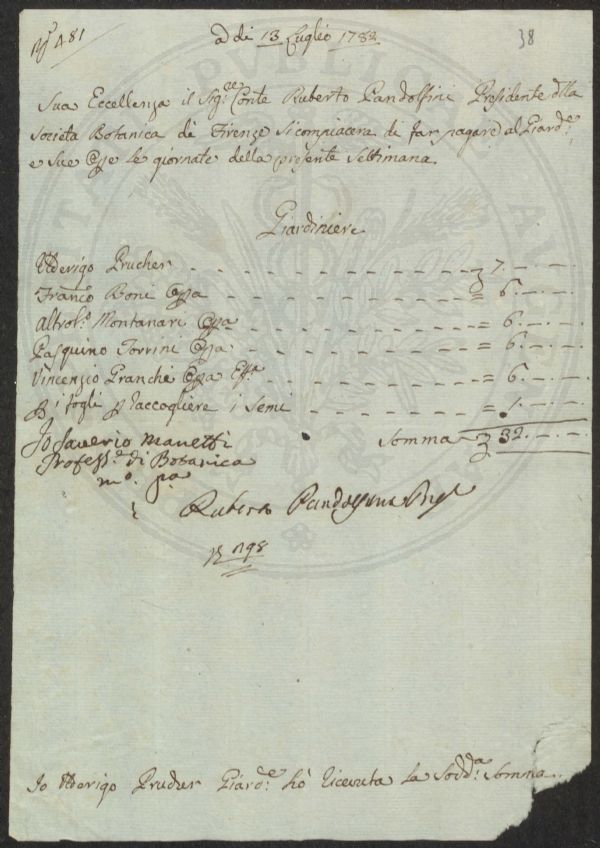 N.º 481
a di 13 Luglio 1782
38
Sua Eccellenza il Sig.re Conte Ruberto Pandolfini Presidente della
Societa Botanica di Firenze si compiacera di far pagare al Giard.e
e sue Opre le giornate della presente settimana
Giardiniere
Uderigo Prucher 7. — . —
Franco Boni Opra = 6. — . —
Altro.o Montanari Opra = 6. — . —
Pasquino Torrini Opra = 6. — . —
Vincenzio Franchi Opra = 6. — . —
P i fogli p raccogliere i Semi = 1. — . —
Io Saverio Manetti
Somma 32. — . —
Profess.e di Botanica
m.o p.a
Ruberto Pandolfini
N 198
Io Uderigo Prucher Giard.e hò ricevuta la Sodd.a Somma